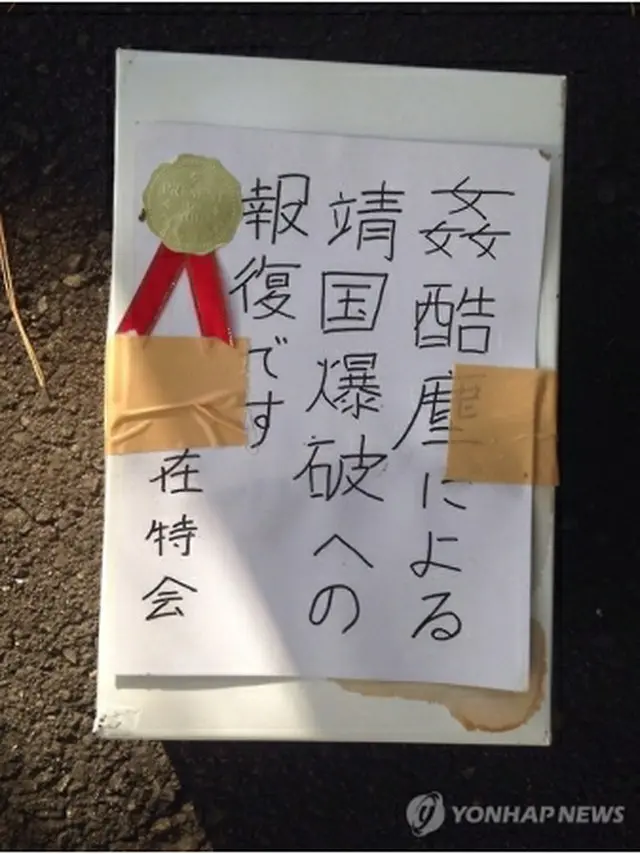 姦酷塵による
靖国爆破への
報復です
在特会
YONHAP NEWS